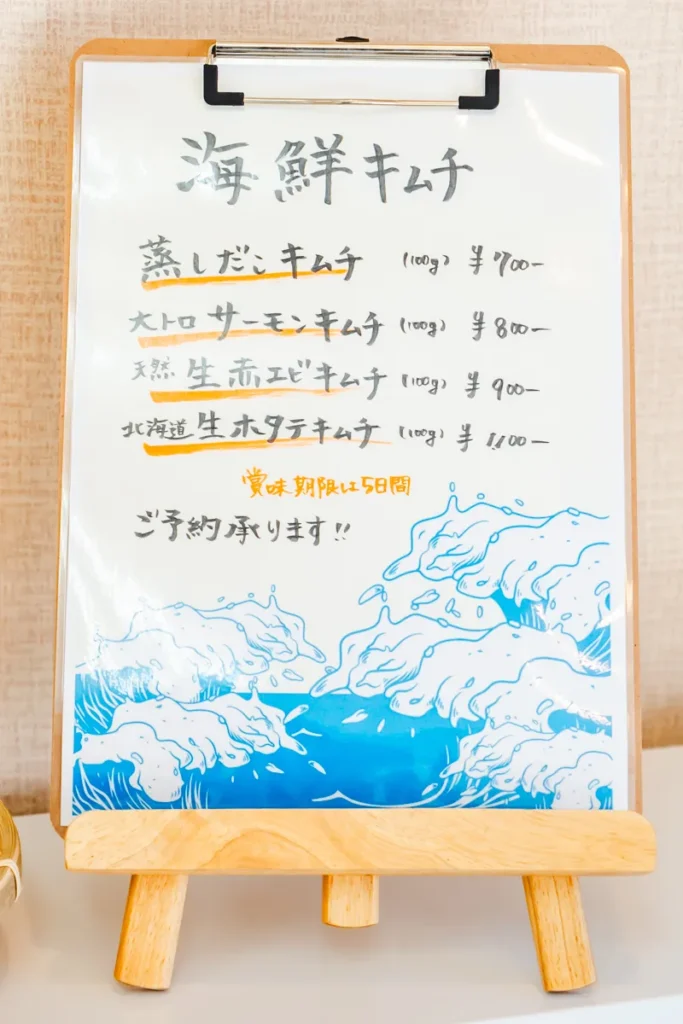 海鮮キムチ
蒸しだこキムチ (100g) ¥700-
大トロサーモンキムチ (100g) ¥800-
天然生赤エビキムチ (100g) ¥900-
北海道生ホタテキムチ (100g) ¥1,100-
賞味期限は5日間
ご予約承ります!!